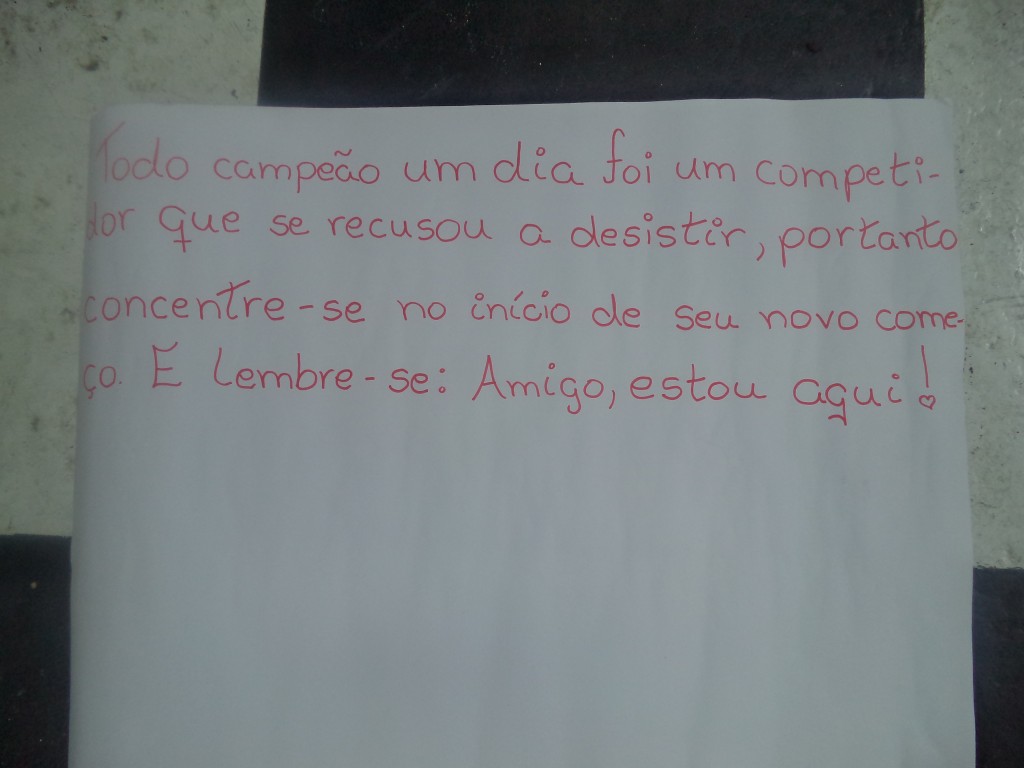 Todo campeão um dia foi um competi-
dor que se recusou a desistir, portanto
concentre-se no início de seu novo come-
ço. E lembre-se: Amigo, estou aqui!